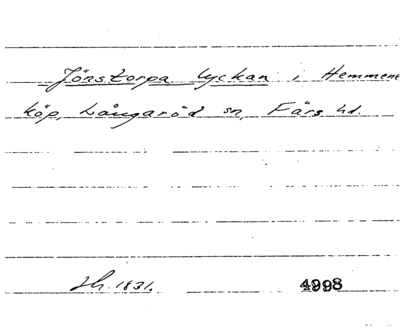 Jönstorpa lyckan i Hemmene
köp, Långaröd sn, Färs hd.
Zh. 1831.
4998